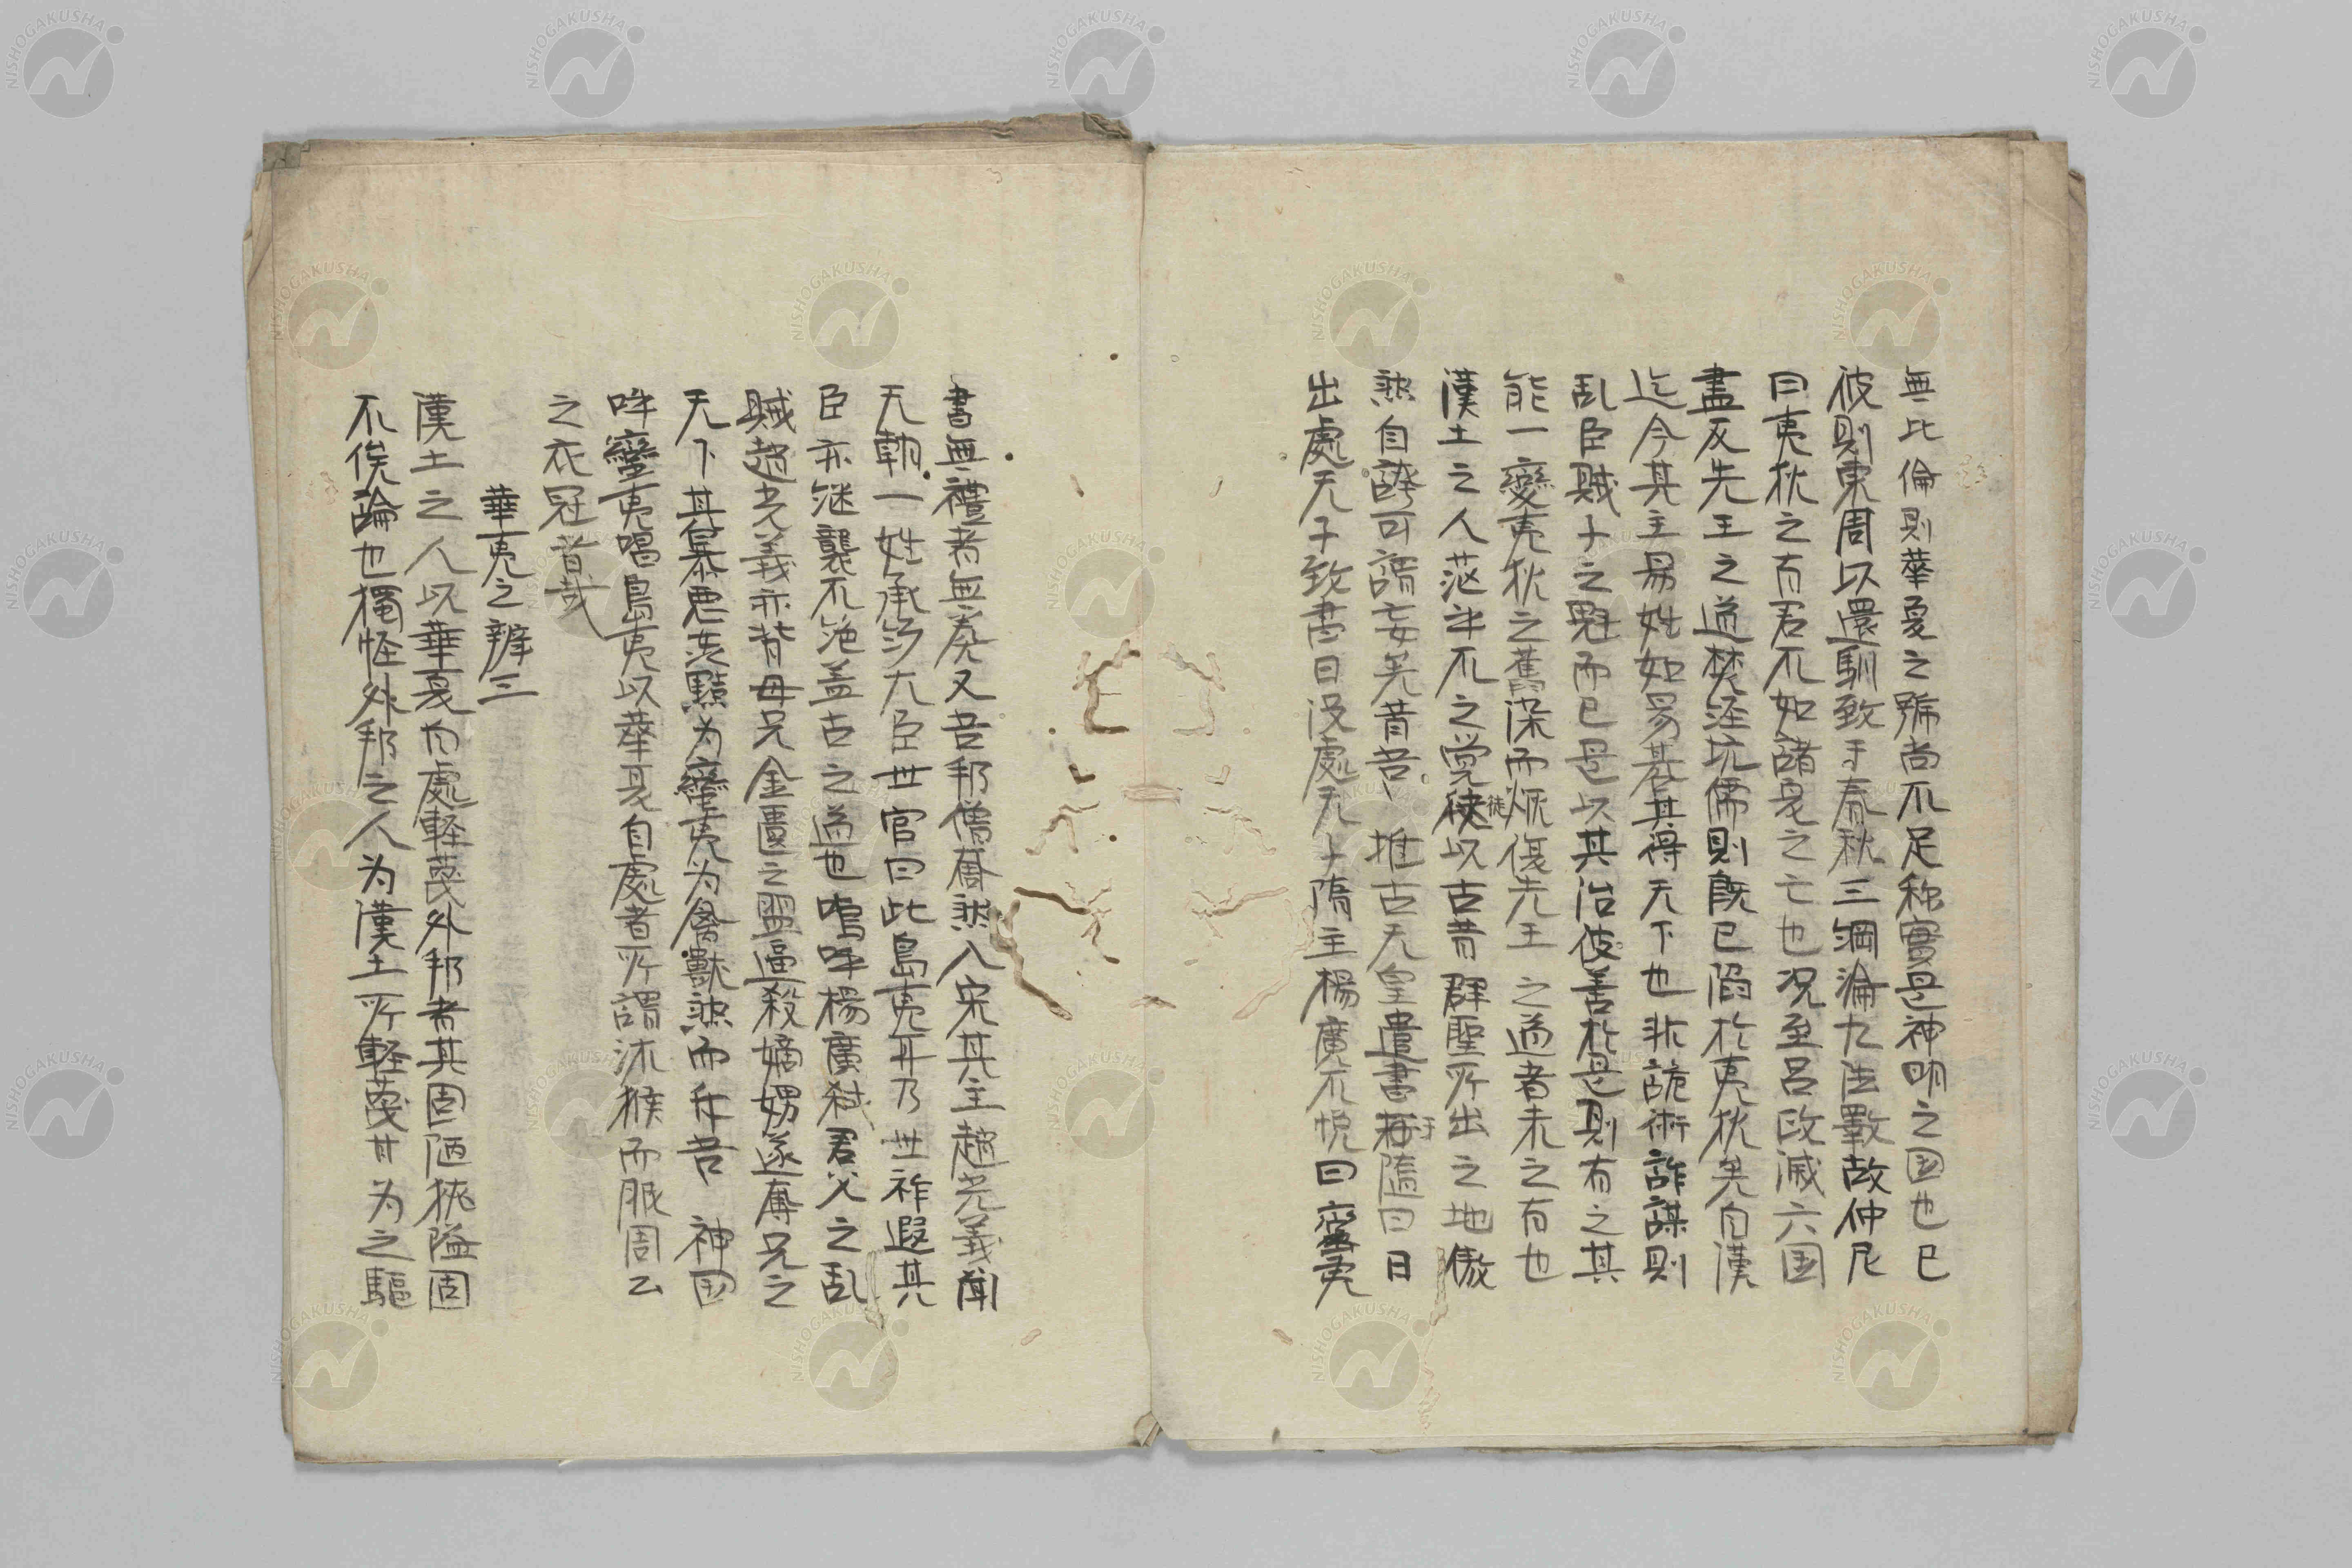 無比倫則華夏之號尚不足称實是神明之国也已
彼則東周以還馴致于春秋三綱淪九法斁故仲尼
曰夷狄之有君不如諸夏之亡也况至呂政滅六国
盡反先王之道焚経坑儒則既已陥於夷狄矣自漢
迄今其主易姓如易碁其得天下也非詭術詐謀則
乱臣賊子之魁而已是以其治彼善於是則有之其
能一變夷狄之舊染而恢復先王之道者未之有也
漢土之人茫乎不之覚徒以古昔群聖所出之地傲
然自誇可謂妄矣昔吾 推古天皇遣書于隋曰日
出處天子致書日没處天子隋主楊廣不悦曰蠻夷
書無禮者無奏又吾邦僧奝然入宋其主趙光義聞
天朝一姓承行大臣世官曰此島夷耳乃世祚遐其
臣亦継襲不絶盖古之道也嗚呼楊廣弑君父之乱
賊趙光義亦背母兄金匱之盟逼殺嫡甥遂奪兄之
天下其暴悪洪黠為蠻夷為禽獣然而斥吾 神国
呼蠻夷唱島夷以華夏自處者所謂沐猴而服周公
之衣冠者哉
華夷之辨三
漢土之人以華夏自處軽蔑外邦者其固陋狭隘固
不俟論也獨怪外邦之人為漢土所軽蔑甘為之驅
NISHOGAKUSHA